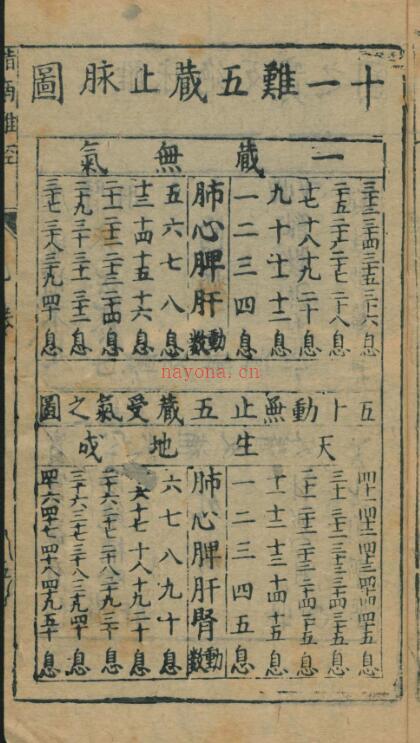 十一難五藏止脉圖
一藏無氣
三十三三十四三十五三十六息
二十五二十六二十七二十八息
十七十八十九二十息
九十十一十二息
一二三四息
肺心脾肝動數
五六七八息
十三十四十五十六息
二十一二十二二十三二十四息
二十九三十三十一三十二息
三十七三十八三十九四十息
nayona.cn
五十動無止五藏受氣之圖
天生地成
四十一四十二四十三四十四四十五息
三十一三十二三十三三十四三十五息
二十一二十二二十三二十四二十五息
十一十二十三十四十五息
一二三四五息
肺心脾肝腎動數
六七八九十息
十六十七十八十九二十息
二十六二十七二十八二十九三十息
三十六三十七三十八三十九四十息
四十六四十七四十八四十九五十息